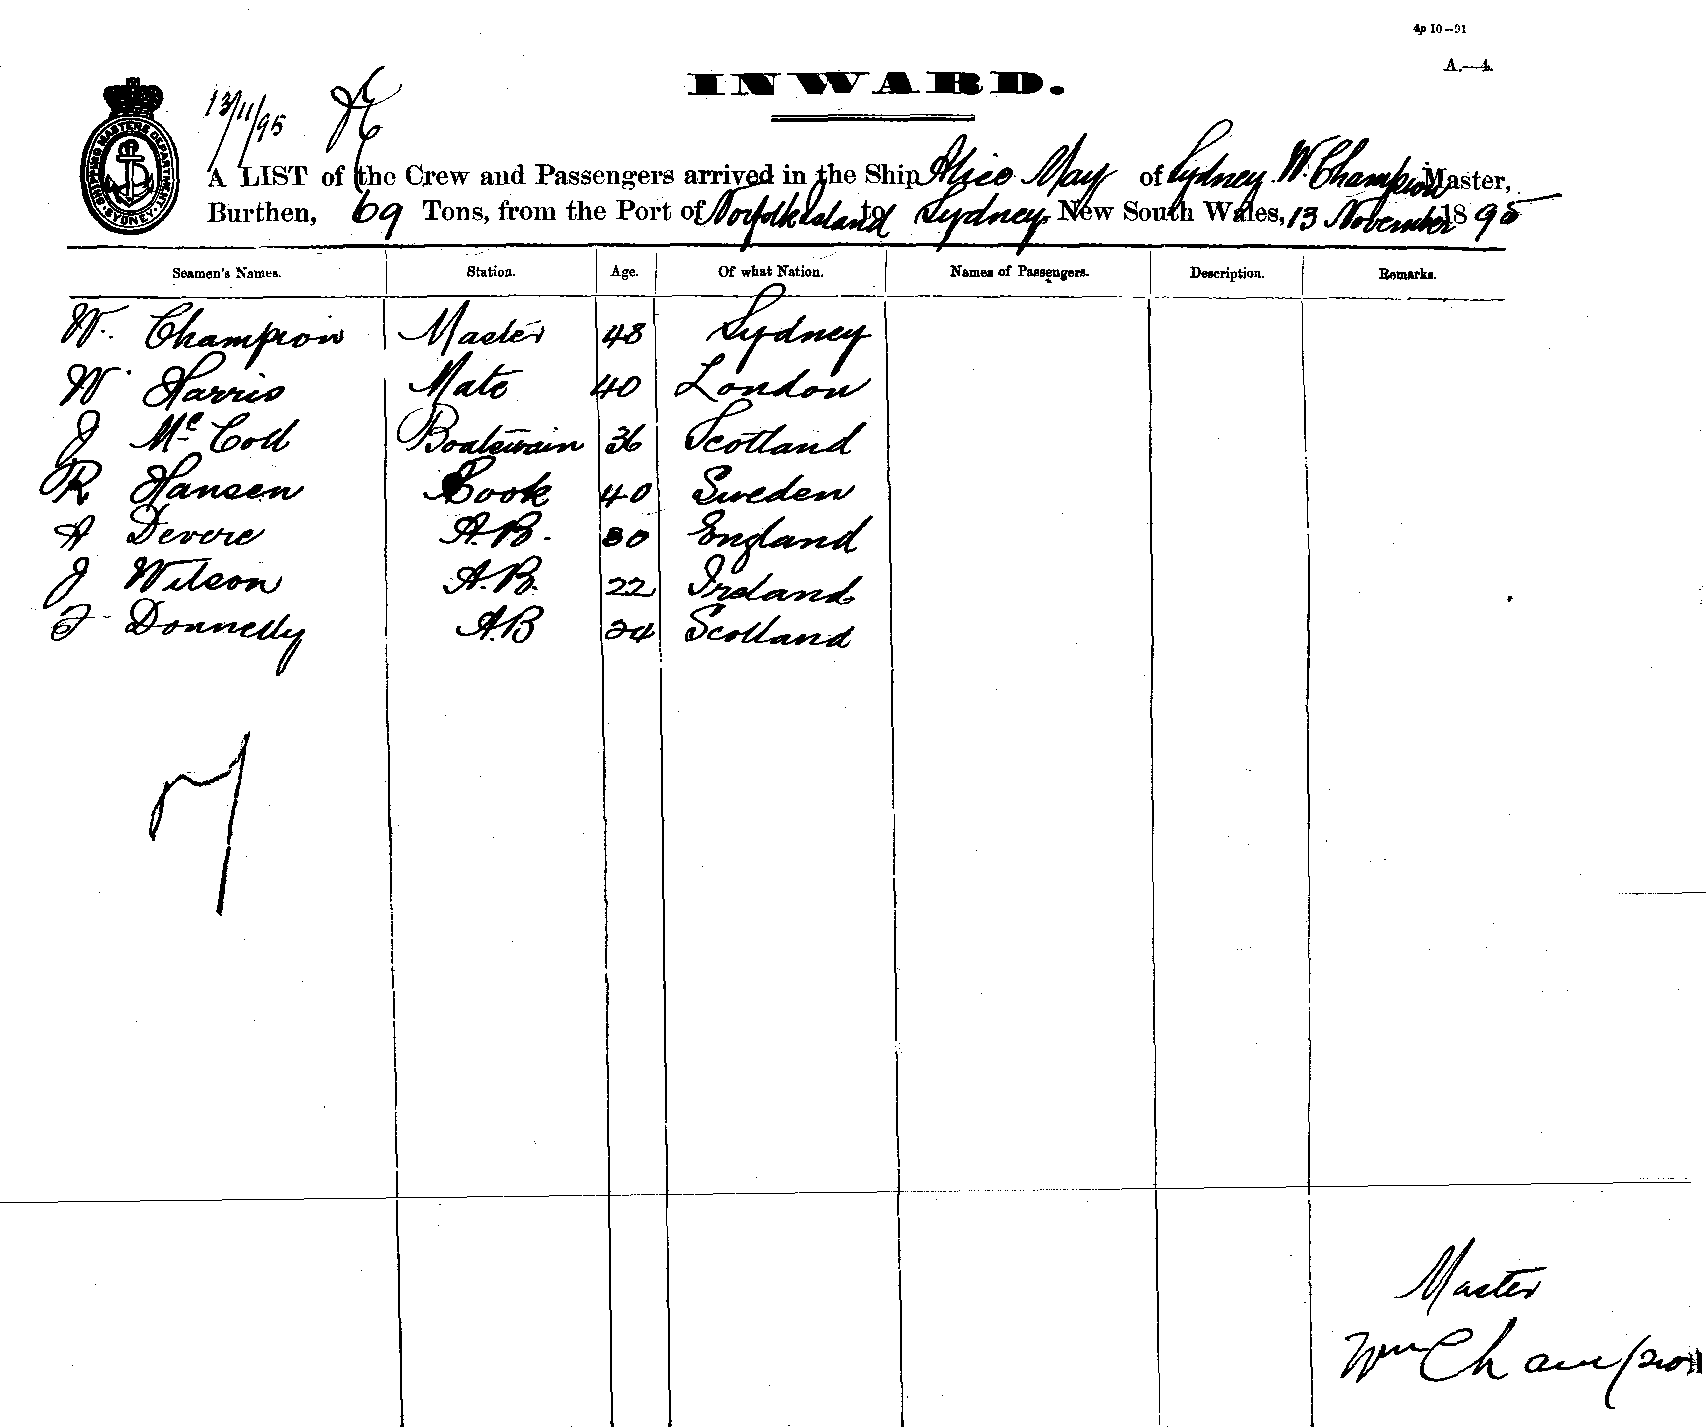 4p 10—91
A.—4
INWARD.
13/11/95
SHIPPING MASTERS DEPARTMENT SYDNEY
A LIST of the Crew and Passengers arrived in the Ship Alice May of Sydney W. Champion Master,
Burthen, 69 Tons, from the Port of Norfolk Island to Sydney New South Wales, 13 November 1895
Seamen's Names. Station. Age. Of what Nation. Names of Passengers. Description. Remarks.
W. Champion Master 48 Sydney
W Harris Mate 40 London
J McColl Boatswain 36 Scotland
R Hansen Cook 40 Sweden
A Devere A.B. 30 England
J Wilson A.B. 22 Ireland
F Donnelly A.B 24 Scotland
7
Master
Wm Champion